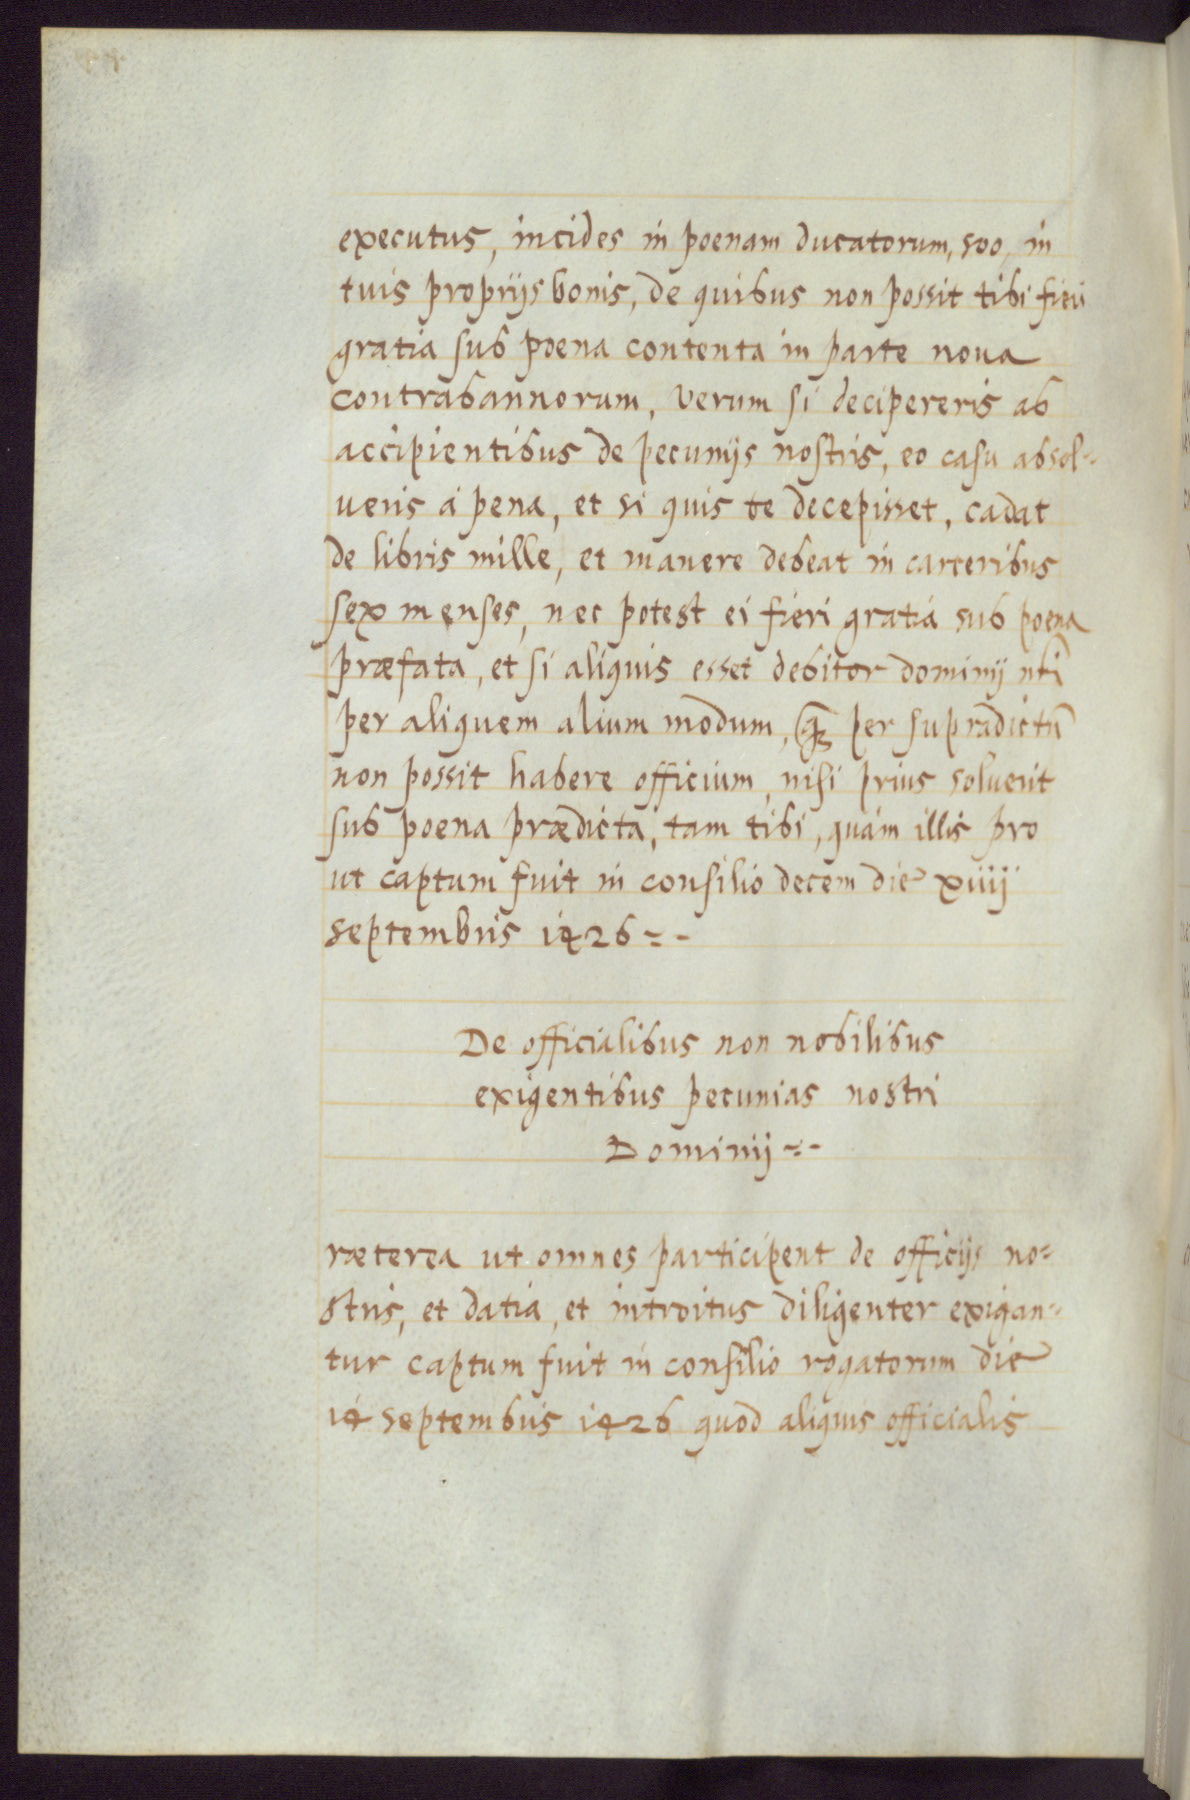 executus, incides in poenam ducatorum, 500, in
tuis proprijs bonis, de quibus non possit tibi fieri
gratia sub poena contenta in parte noua
contrabannorum, verum si decipereris ab
accipientibus de pecunijs nostris, eo casu absol=
ueris á pena, et si quis te decepisset, cadat
de libris mille, et manere debeat in carceribus
sex menses, nec potest ei fieri gratia sub poena
præfata, et si aliquis esset debitor dominij nr̃i
per aliquem alium modum, per supradictũ
non possit habere officium, nisi prius soluerit
sub poena prædicta, tam tibi, quám illis pro
ut captum fuit in consilio decem die xiiij
septembris 1426 =-
De officialibus non nobilibus
exigentibus pecunias nostri
Dominij =-
ræterea ut omnes participent de officijs no=
stris, et datia, et introitus diligenter exigan=
tur captum fuit in consilio rogatorum die
14 septembris 1426 quod aliquis officialis